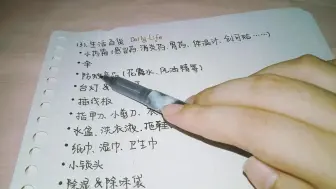 (3) 生活百货 Daily Life
• 小药箱(感冒药 消炎药、胃药、体温计、创可贴……)
• 伞
• 防蚊 (花露水、风油精等)
• 台灯
• 插线板
• 指甲刀、小剪刀、
• 水盆、洗衣液、拖鞋
• 纸巾、湿巾、卫生巾
• 小锁头
除湿&除味袋